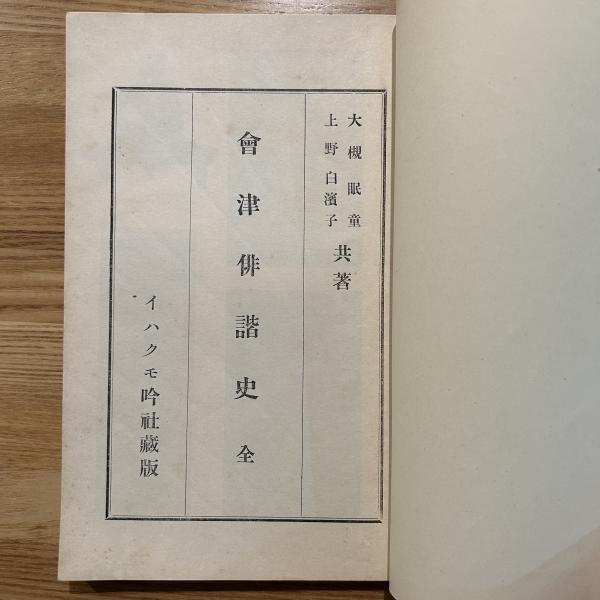 大槻眠童
上野白濱子
共著
會津俳諧史 全
イハクモ吟社藏版